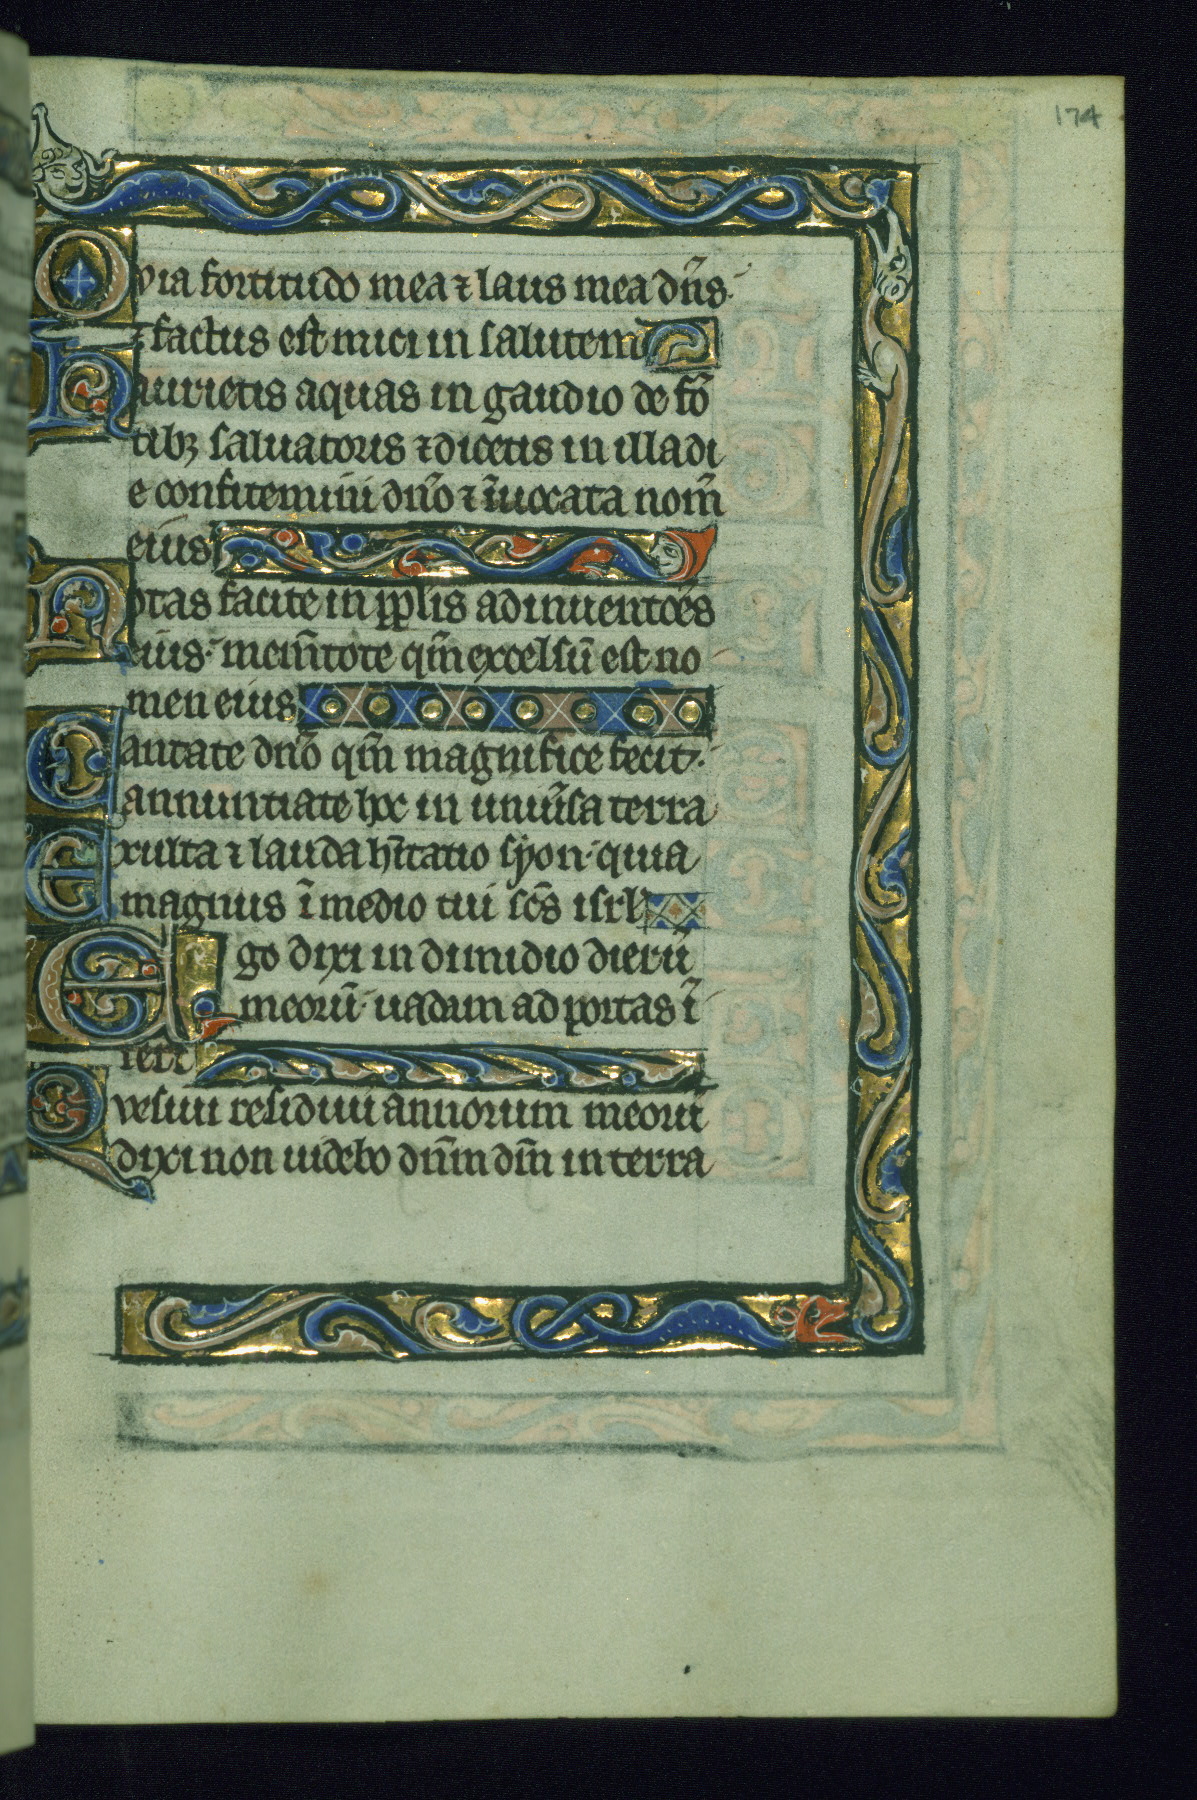 174
Quia fortitudo mea ⁊ laus mea dn̄s·
⁊ factus est mici in salutem
Haurietis aquas in gaudio de fō
tibꝫ saluatoris ⁊ dicetis in illa di
e confitemini dn̄o ⁊ īuocata nom̄
eius
Notas facite in pp̄lis adinuentōēs
eius· mem̄tote qm̄ excelsū est no
men eius
Cantate dn̄o qm̄ magnifice fecit·
annuntiate hoc in uniu̓sa terra
Exulta ⁊ lauda h̄itatio syon· quia
magnus ī medio tui sc̄s isrl̄
Ego dixi in dimidio dierū
meorū· uadam ad portas ī
feri
Quesiui residuu annorum meorū
dixi non uidebo dn̄m dm̄ in terra